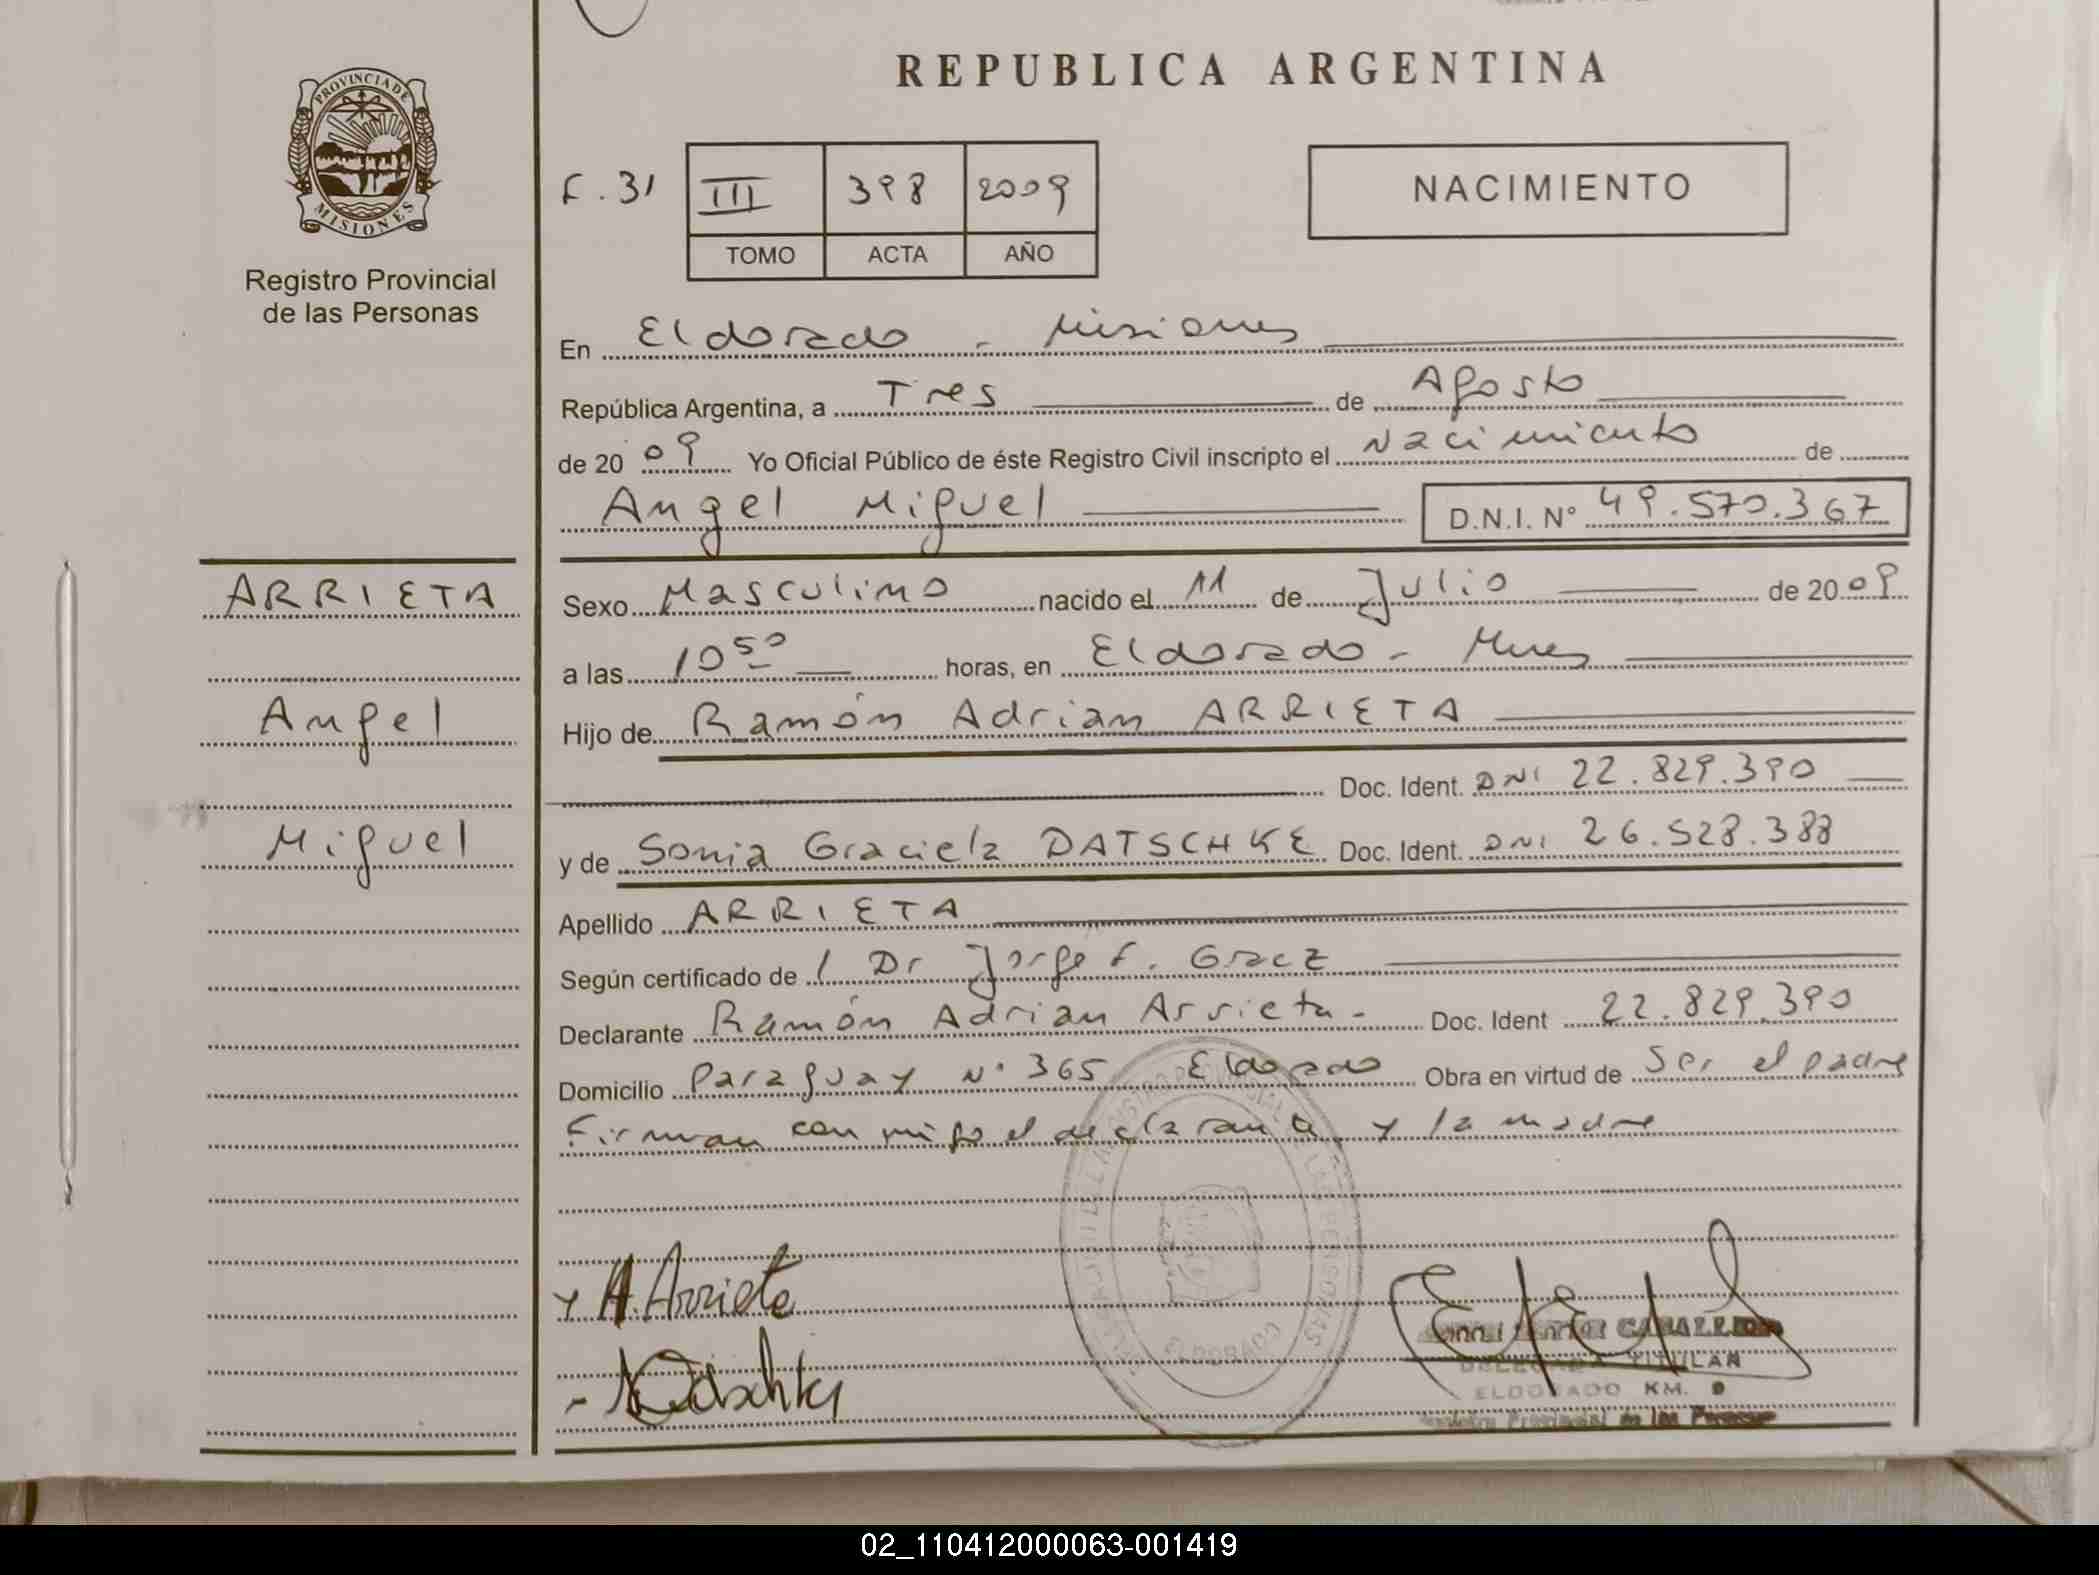 REPUBLICA ARGENTINA
PROVINCIA DE
MISIONES
Registro Provincial
de las Personas
F. 31
III 398 2009
TOMO ACTA AÑO
NACIMIENTO
En Eldorado - Misiones
República Argentina, a Tres de Agosto
de 20 09 Yo Oficial Público de éste Registro Civil inscripto el Nacimiento de
Angel Miguel D.N.I. N° 49.570.367
ARRIETA
Angel
Miguel
Sexo Masculino nacido el 11 de Julio de 20 09
a las 10 50 horas, en Eldorado - Mnes
Hijo de Ramón Adrian ARRIETA
Doc. Ident. DNI 22.829.390
y de Sonia Graciela DATSCHKE Doc. Ident. DNI 26.528.388
Apellido ARRIETA
Según certificado de l Dr Jorge F. Gracz
Declarante Ramón Adrian Arrieta - Doc. Ident 22.829.390
Domicilio Paraguay N° 365 Eldorado Obra en virtud de Ser el padre
Firman con migo el declarante y la madre
A. Arrieta
ELDORADO
DELEGADA TITULAR
ELDORADO KM. 9
Registro Provincial de las Personas
02_110412000063-001419